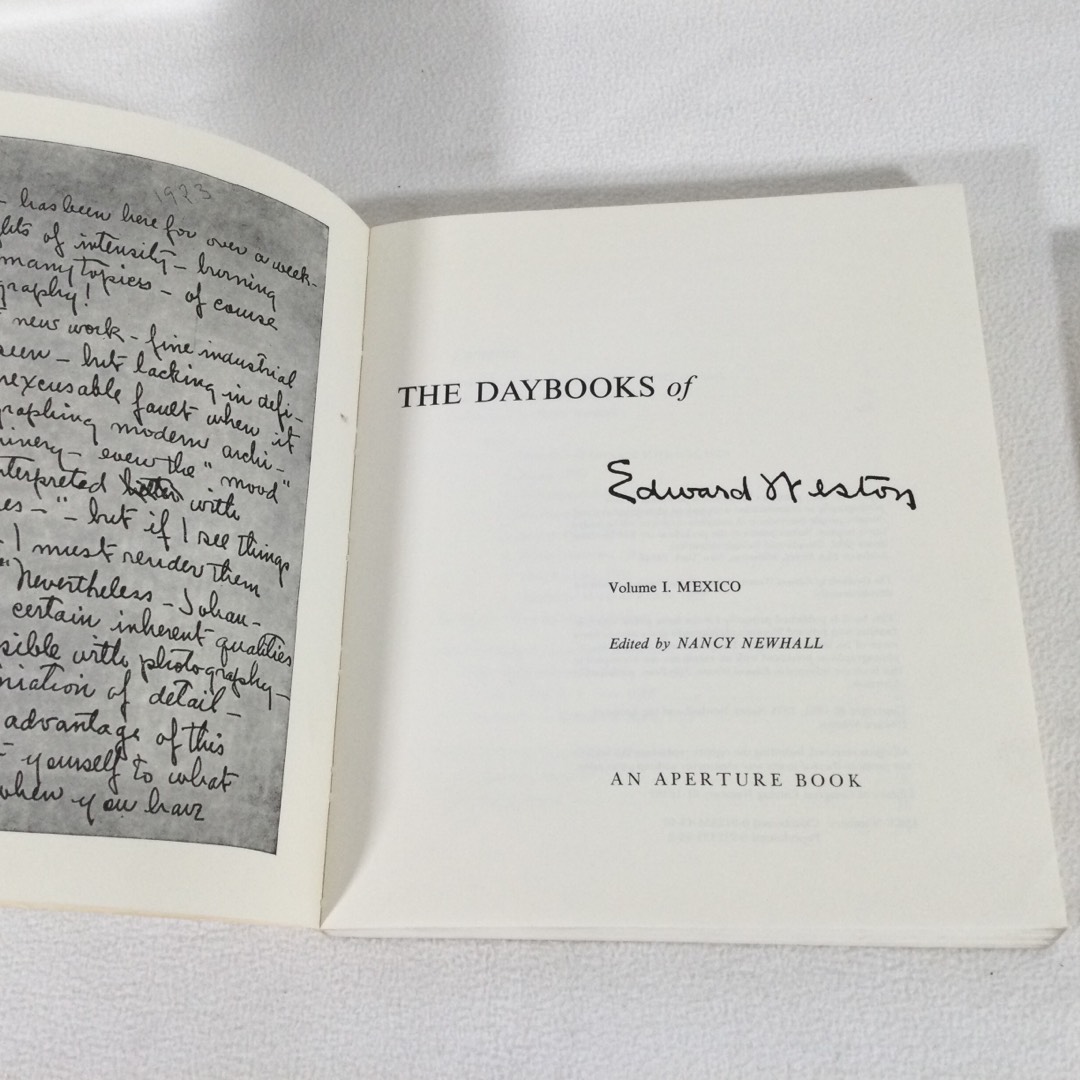 1923
- has been here for over a week -
of intensity - burning
many topics - of course
graphy!
new work - fine industrial
seen - but lacking in defi-
inexcusable fault when it
graphing modern archi-
inery - even the "mood"
nterpreted better with
es - " - but if I see things
I must render them
"Nevertheless - Johan-
certain inherent qualities
sible with photography -
niation of detail -
advantage of this
- yourself to what
when you have
THE DAYBOOKS of
Edward Weston
Volume I. MEXICO
Edited by NANCY NEWHALL
AN APERTURE BOOK